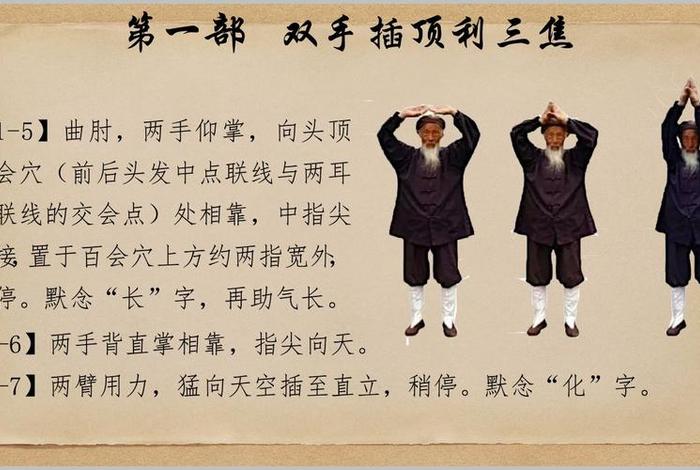 第一部 双手插顶利三焦
1-5】曲肘，两手仰掌，向头顶
会穴（前后头发中点联线与两耳
联线的交会点）处相靠，中指尖
接,置于百会穴上方约两指宽外,
停。默念“长”字，再助气长。
-6】两手背直掌相靠，指尖向天。
-7】两臂用力，猛向天空插至直立，稍停。默念“化”字。